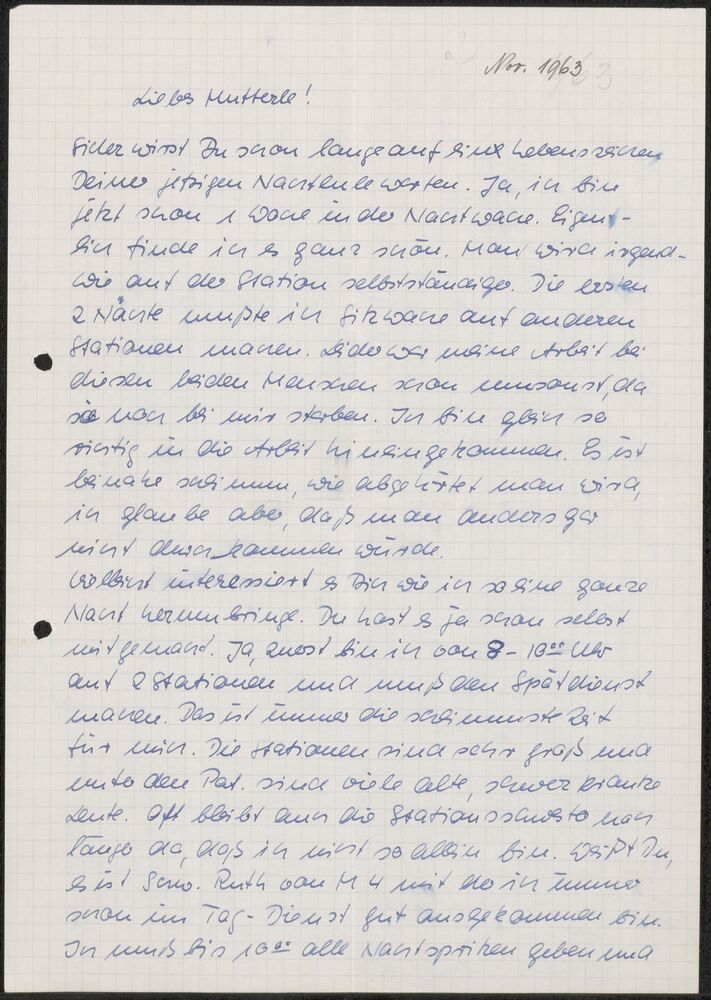 Nov. 1963
Liebes Mutterle!
Sicher wirst Du schon lange auf ein Lebenszeichen
Deiner jetzigen Nachteule warten. Ja, ich bin
jetzt schon 1 Woche in der Nachtwache. Eigent-
lich finde ich es ganz schön. Man wird irgend-
wie auf der Station selbstständiger. Die ersten
2 Nächte mußte ich Sitzwache auf anderen
Stationen machen. Leider war meine Arbeit bei
diesen beiden Menschen schon umsonst, da
sie noch bei mir starben. Ich bin gleich so
richtig in die Arbeit hineingekommen. Es ist
beinahe schlimm, wie abgehärtet man wird,
ich glaube aber, daß man anders gar
nicht durchkommen würde.
Vielleicht interessiert es Dich wie ich so eine ganze
Nacht herumbringe. Du hast es ja schon selbst
mitgemacht. Ja, zuerst bin ich von 8 - 10⁰⁰ Uhr
auf 2 Stationen und muß den Spätdienst
machen. Das ist immer die schlimmste Zeit
für mich. Die Stationen sind sehr groß und
unter den Pat. sind viele alte, schwer kranke
Leute. Oft bleibt auch die Stationsschwester noch
länger da, daß ich nicht so allein bin. Weißt Du,
es ist Schw. Ruth von M 4 mit der ich immer
schon im Tag-Dienst gut ausgekommen bin.
Ich muß bis 10⁰⁰ alle Nachtspritzen geben und